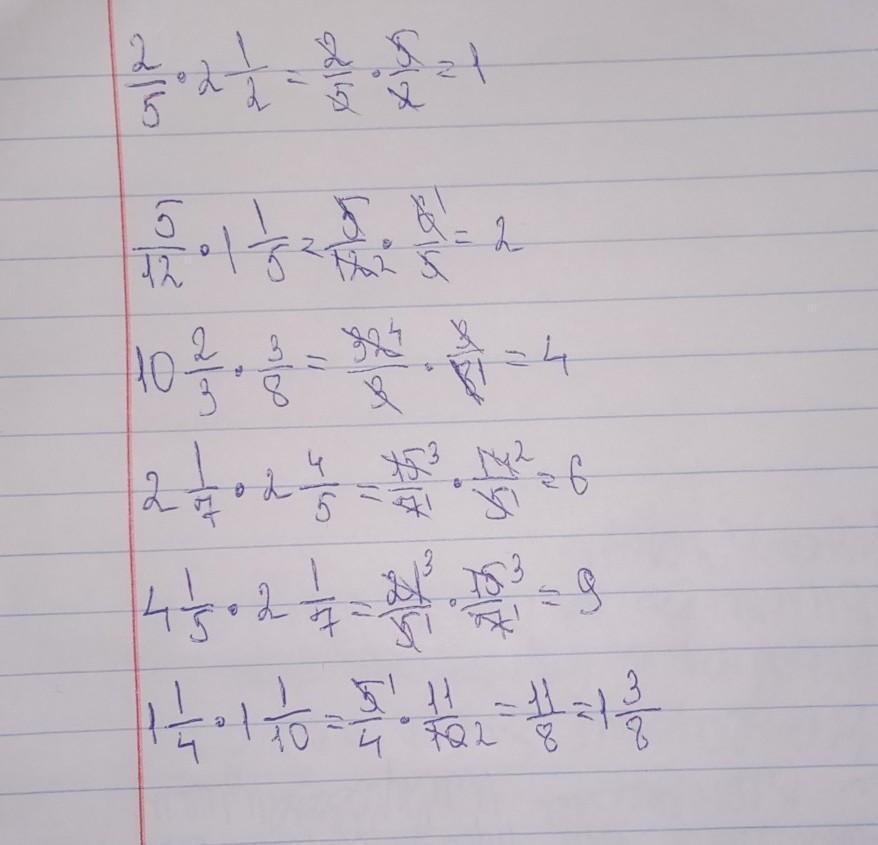 2/5 · 2 1/2 = 2/5 · 5/2 = 1
5/12 · 1 1/5 = 5/12 2 · 6 1/5 = 2
10 2/3 · 3/8 = 32 4/3 · 3/8 1 = 4
2 1/7 · 2 4/5 = 15 3/7 1 · 14 2/5 1 = 6
4 1/5 · 2 1/7 = 21 3/5 1 · 15 3/7 1 = 9
1 1/4 · 1 1/10 = 5 1/4 · 11/10 2 = 11/8 = 1 3/8